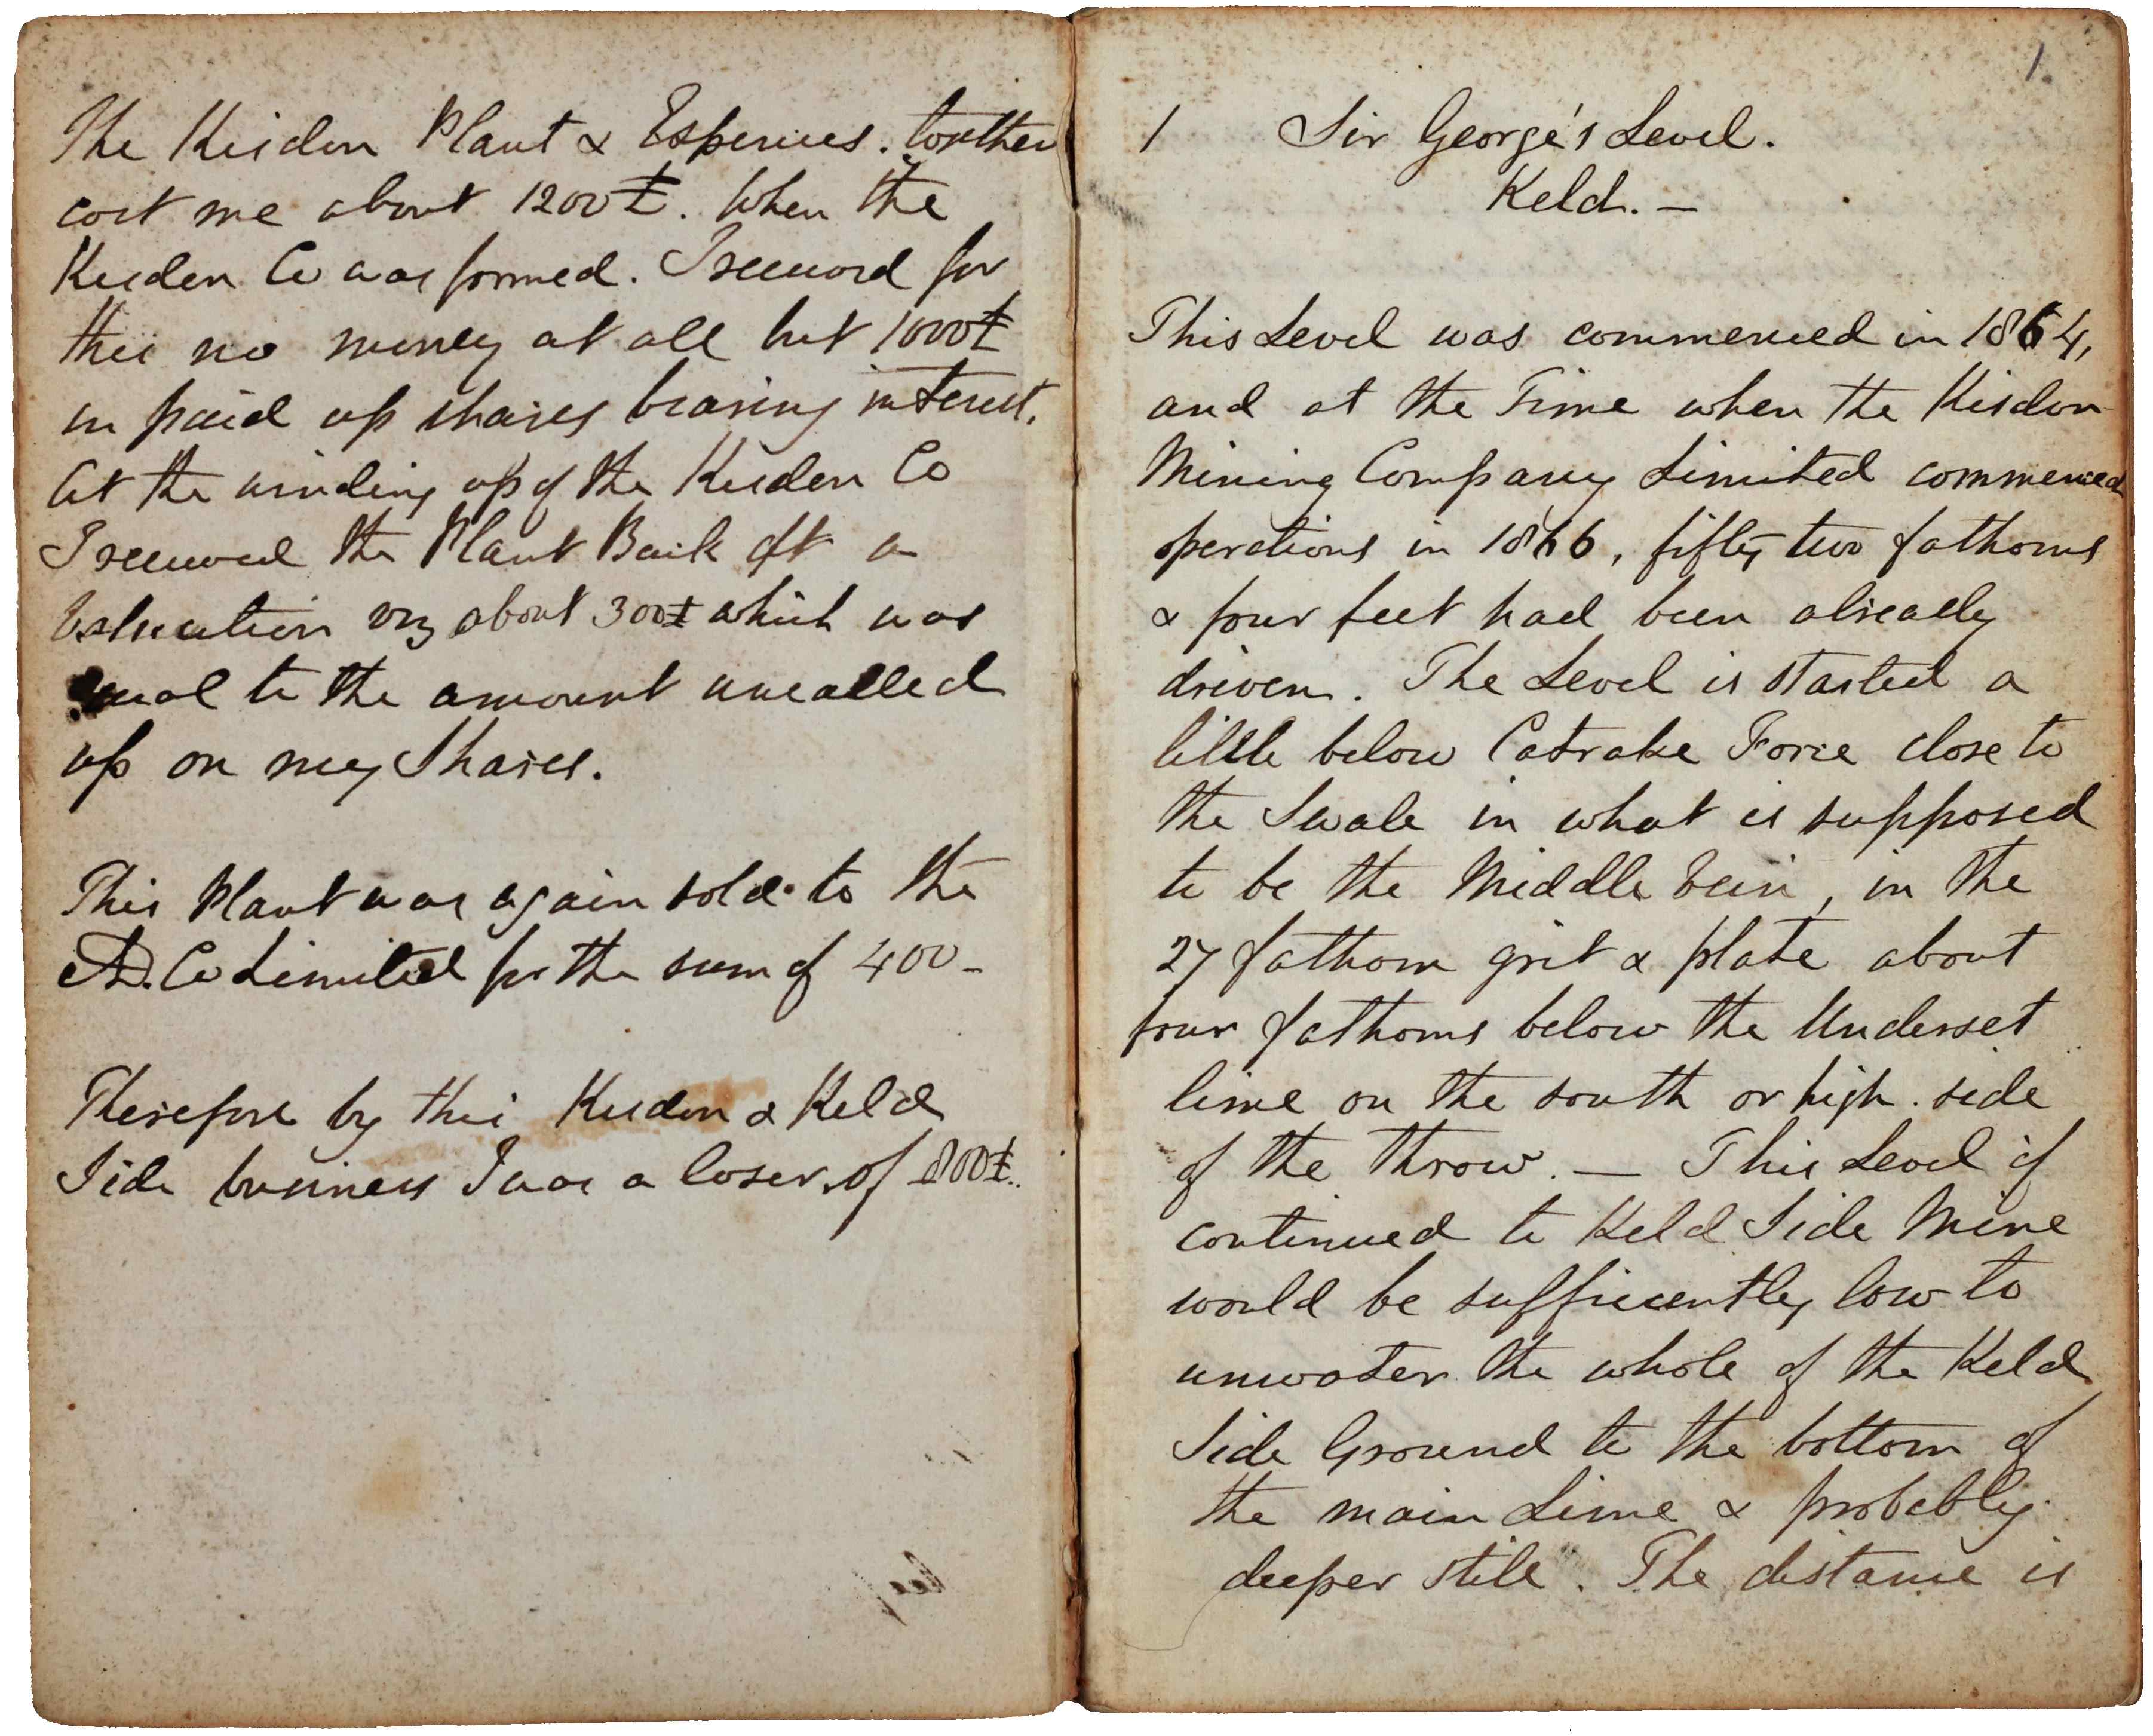 The Kisdon Plant & Expenses. together
cost me about 1200£. When the
Kisdon Co was formed. I received for
this no money at all but 1000£
in paid up shares bearing interest.
At the winding up of the Kisdon Co
I received the Plant Back at a
Valuation viz about 300£ which was
equal to the amount uncalled
up on my Shares.
This Plant was again sold to the
A.D. Co Limited for the sum of 400_
Therefore by this Kisdon & Keld
Side business I was a loser of 800£.
1
1 Sir George's Level.
Keld. —
This Level was commenced in 1864,
and at the Time when the Kisdon
Mining Company Limited commenced
operations in 1866, fifty two fathoms
& four feet had been already
driven. The Level is started a
little below Catrake Force close to
the Swale in what is supposed
to be the Middle Vein, in the
27 fathom grit & plate about
four fathoms below the Underset
lime on the south or high side
of the throw. — This Level if
continued to Keld Side Mine
would be sufficently low to
unwater the whole of the Keld
Side Ground to the bottom of
the main Lime & probably
deeper still. The distance is